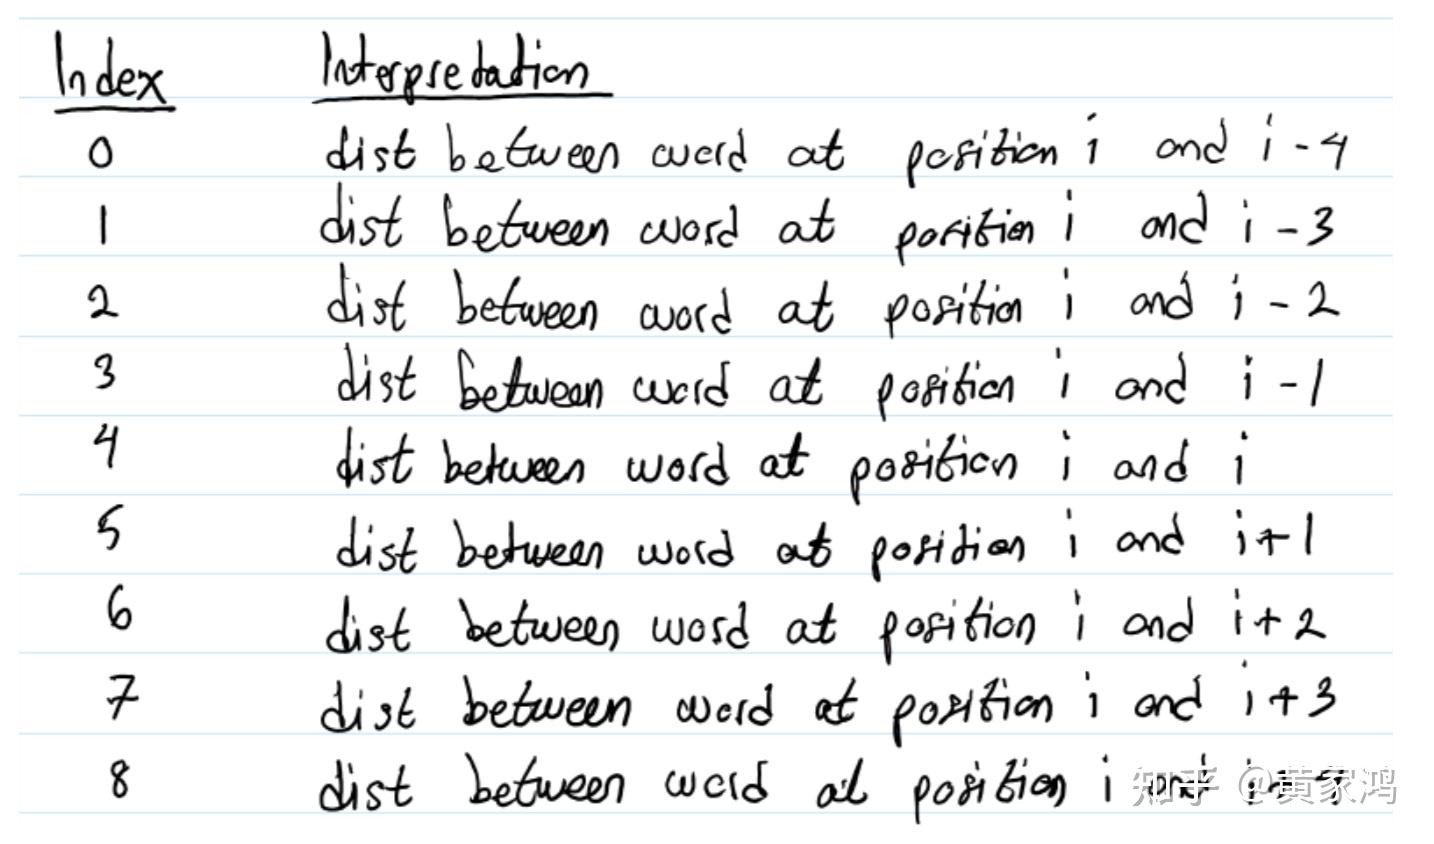 Index Interpretation
0 dist between word at position i and i-4
1 dist between word at position i and i-3
2 dist between word at position i and i-2
3 dist between word at position i and i-1
4 dist between word at position i and i
5 dist between word at position i and i+1
6 dist between word at position i and i+2
7 dist between word at position i and i+3
8 dist between word at position i and
知乎 @黄家鸿